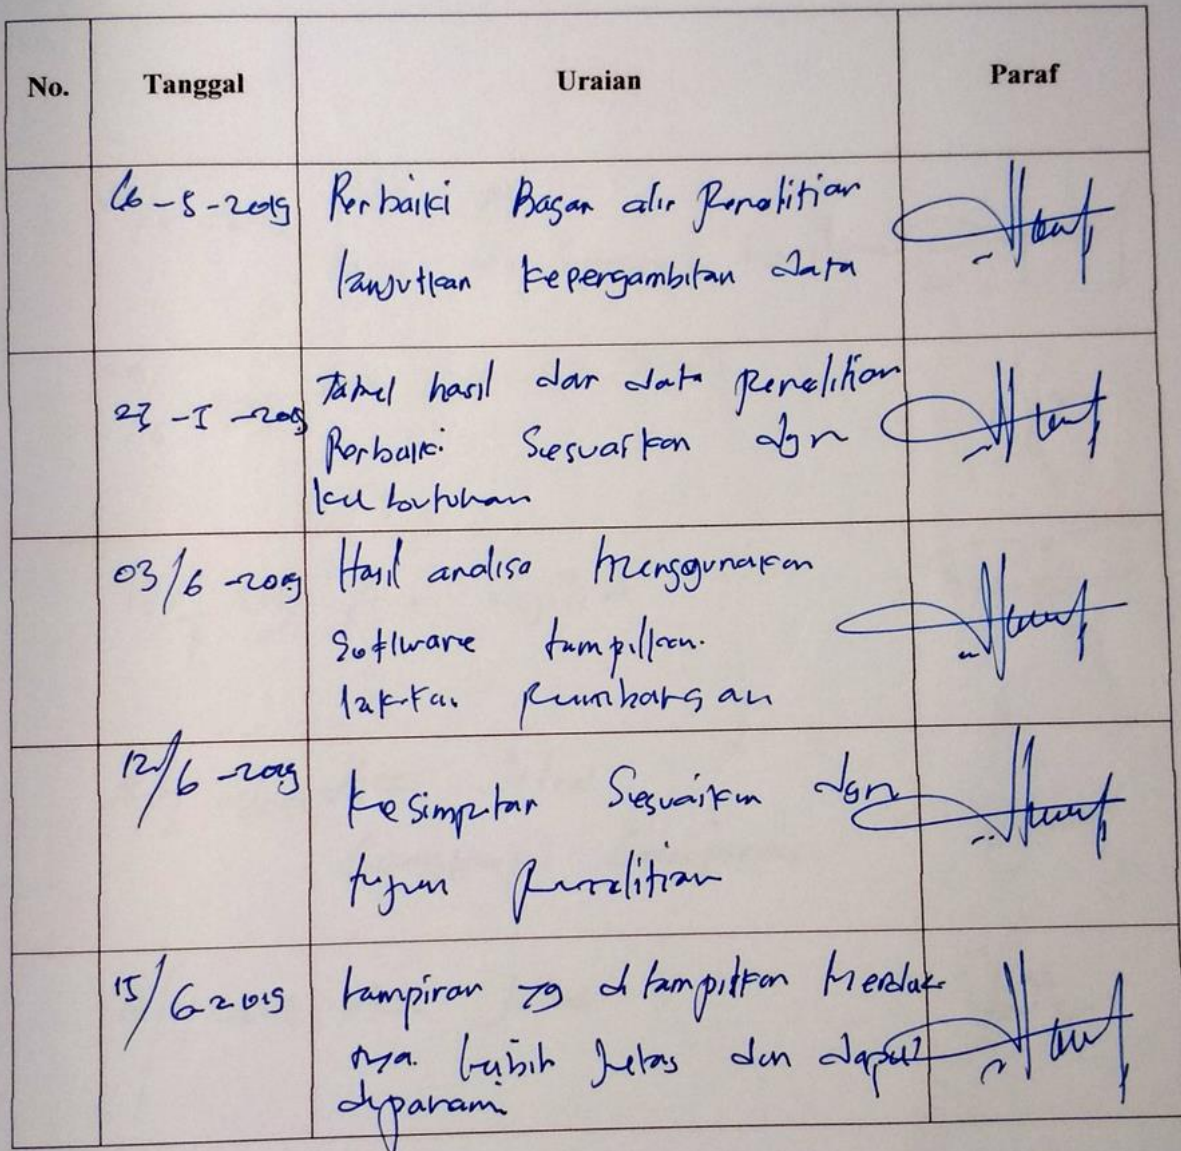 No. Tanggal Uraian Paraf
16-5-2019 Perbaiki Bagan alir Penelitian
lanjutkan kepengambilan data
27-5-2019 Tabel hasil dan data penelitian
Perbaiki Sesuaikan dgn
kebutuhan
03/6-2019 Hasil analisa menggunakan
Software tampilkan.
pembahasan
12/6-2019 Kesimpulan Sesuaikan dgn
tujuan penelitian
15/6-2019 Lampiran yg ditampilkan Hendak
nya lebih Jelas dan dapat
dipahami